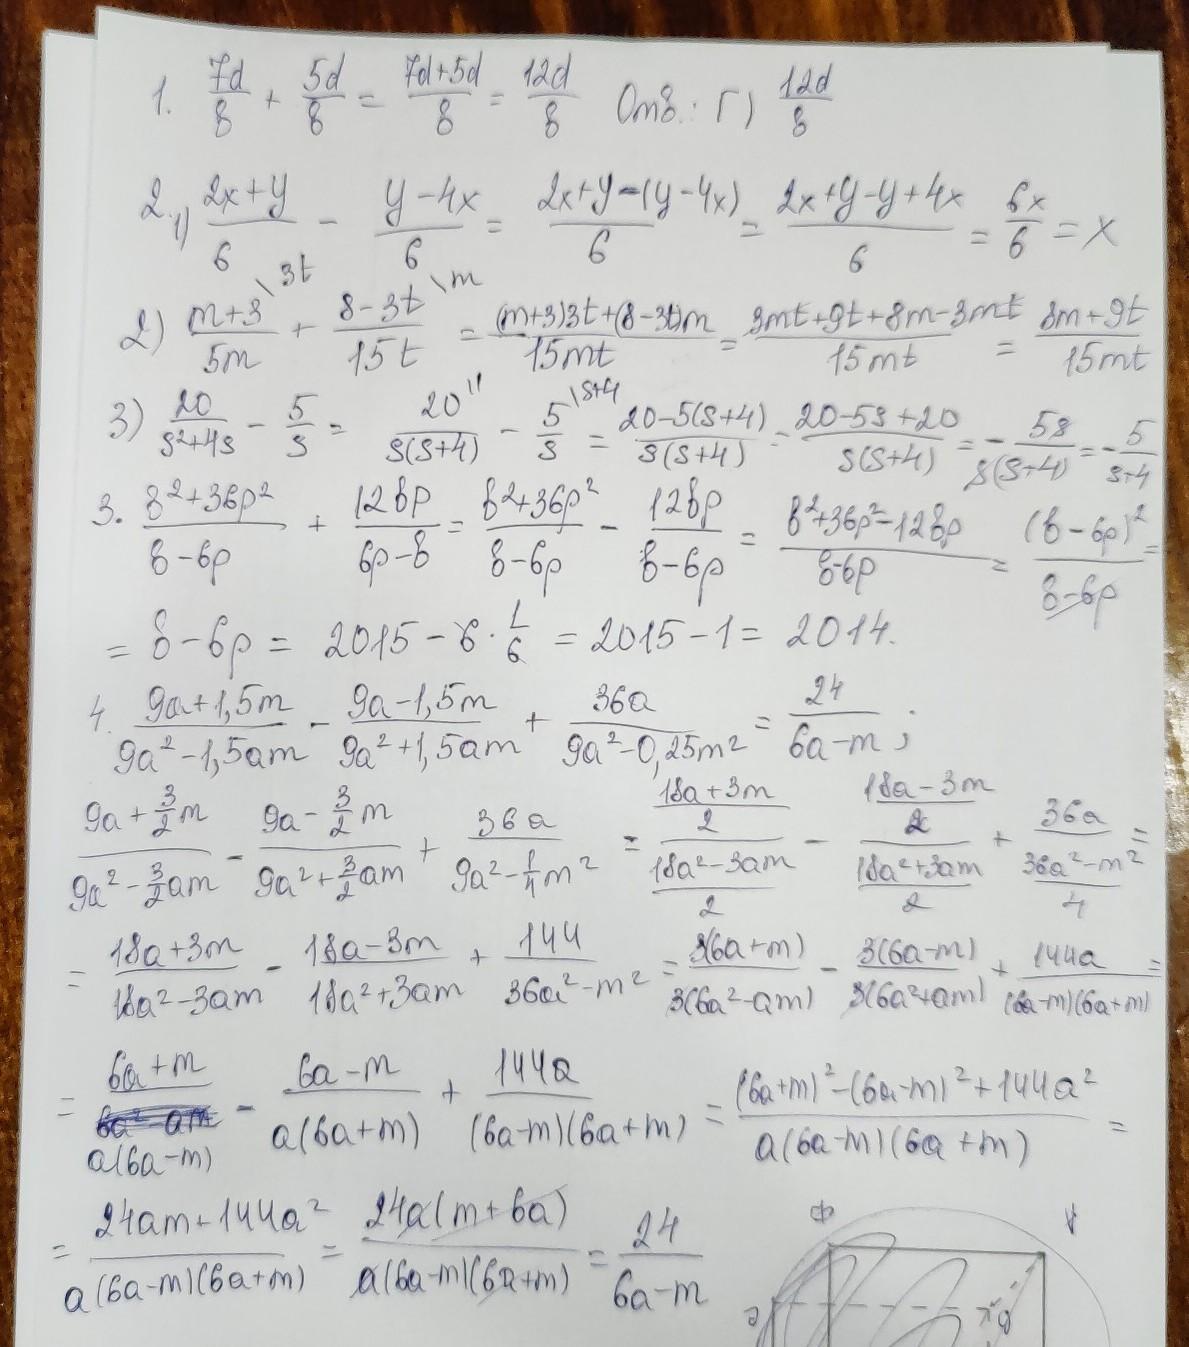 1. 7d/8 + 5d/8 = 7d+5d/8 = 12d/8 Отв.: Г) 12d/8
2. 1) 2x+y/6 - y-4x/6 = 2x+y-(y-4x)/6 = 2x+y-y+4x/6 = 6x/6 = x
2) m+3/5m \3t + 8-3t/15t \m = (m+3)3t+(8-3t)m/15mt = 3mt+9t+8m-3mt/15mt = 8m+9t/15mt
3) 20/s²+4s - 5/s = 20/s(s+4) \1 - 5/s \s+4 = 20-5(s+4)/s(s+4) = 20-5s+20/s(s+4) = -5s/s(s+4) = -5/s+4
3. b²+36p²/b-6p + 12bp/6p-b = b²+36p²/b-6p - 12bp/b-6p = b²+36p²-12bp/b-6p = (b-6p)²/b-6p =
= b-6p = 2015-6·1/6 = 2015-1 = 2014.
4. 9a+1,5m/9a²-1,5am - 9a-1,5m/9a²+1,5am + 36a/9a²-0,25m² = 24/6a-m ;
9a+3/2m/9a²-3/2am - 9a-3/2m/9a²+3/2am + 36a/9a²-1/4m² = 18a+3m/2/18a²-3am/2 - 18a-3m/2/18a²+3am/2 + 36a/36a²-m²/4 =
= 18a+3m/18a²-3am - 18a-3m/18a²+3am + 144/36a²-m² = 3(6a+m)/3(6a²-am) - 3(6a-m)/3(6a²+am) + 144a/(6a-m)(6a+m) =
= 6a+m/a(6a-m) - 6a-m/a(6a+m) + 144a/(6a-m)(6a+m) = (6a+m)²-(6a-m)²+144a²/a(6a-m)(6a+m) =
= 24am+144a²/a(6a-m)(6a+m) = 24a(m+6a)/a(6a-m)(6a+m) = 24/6a-m